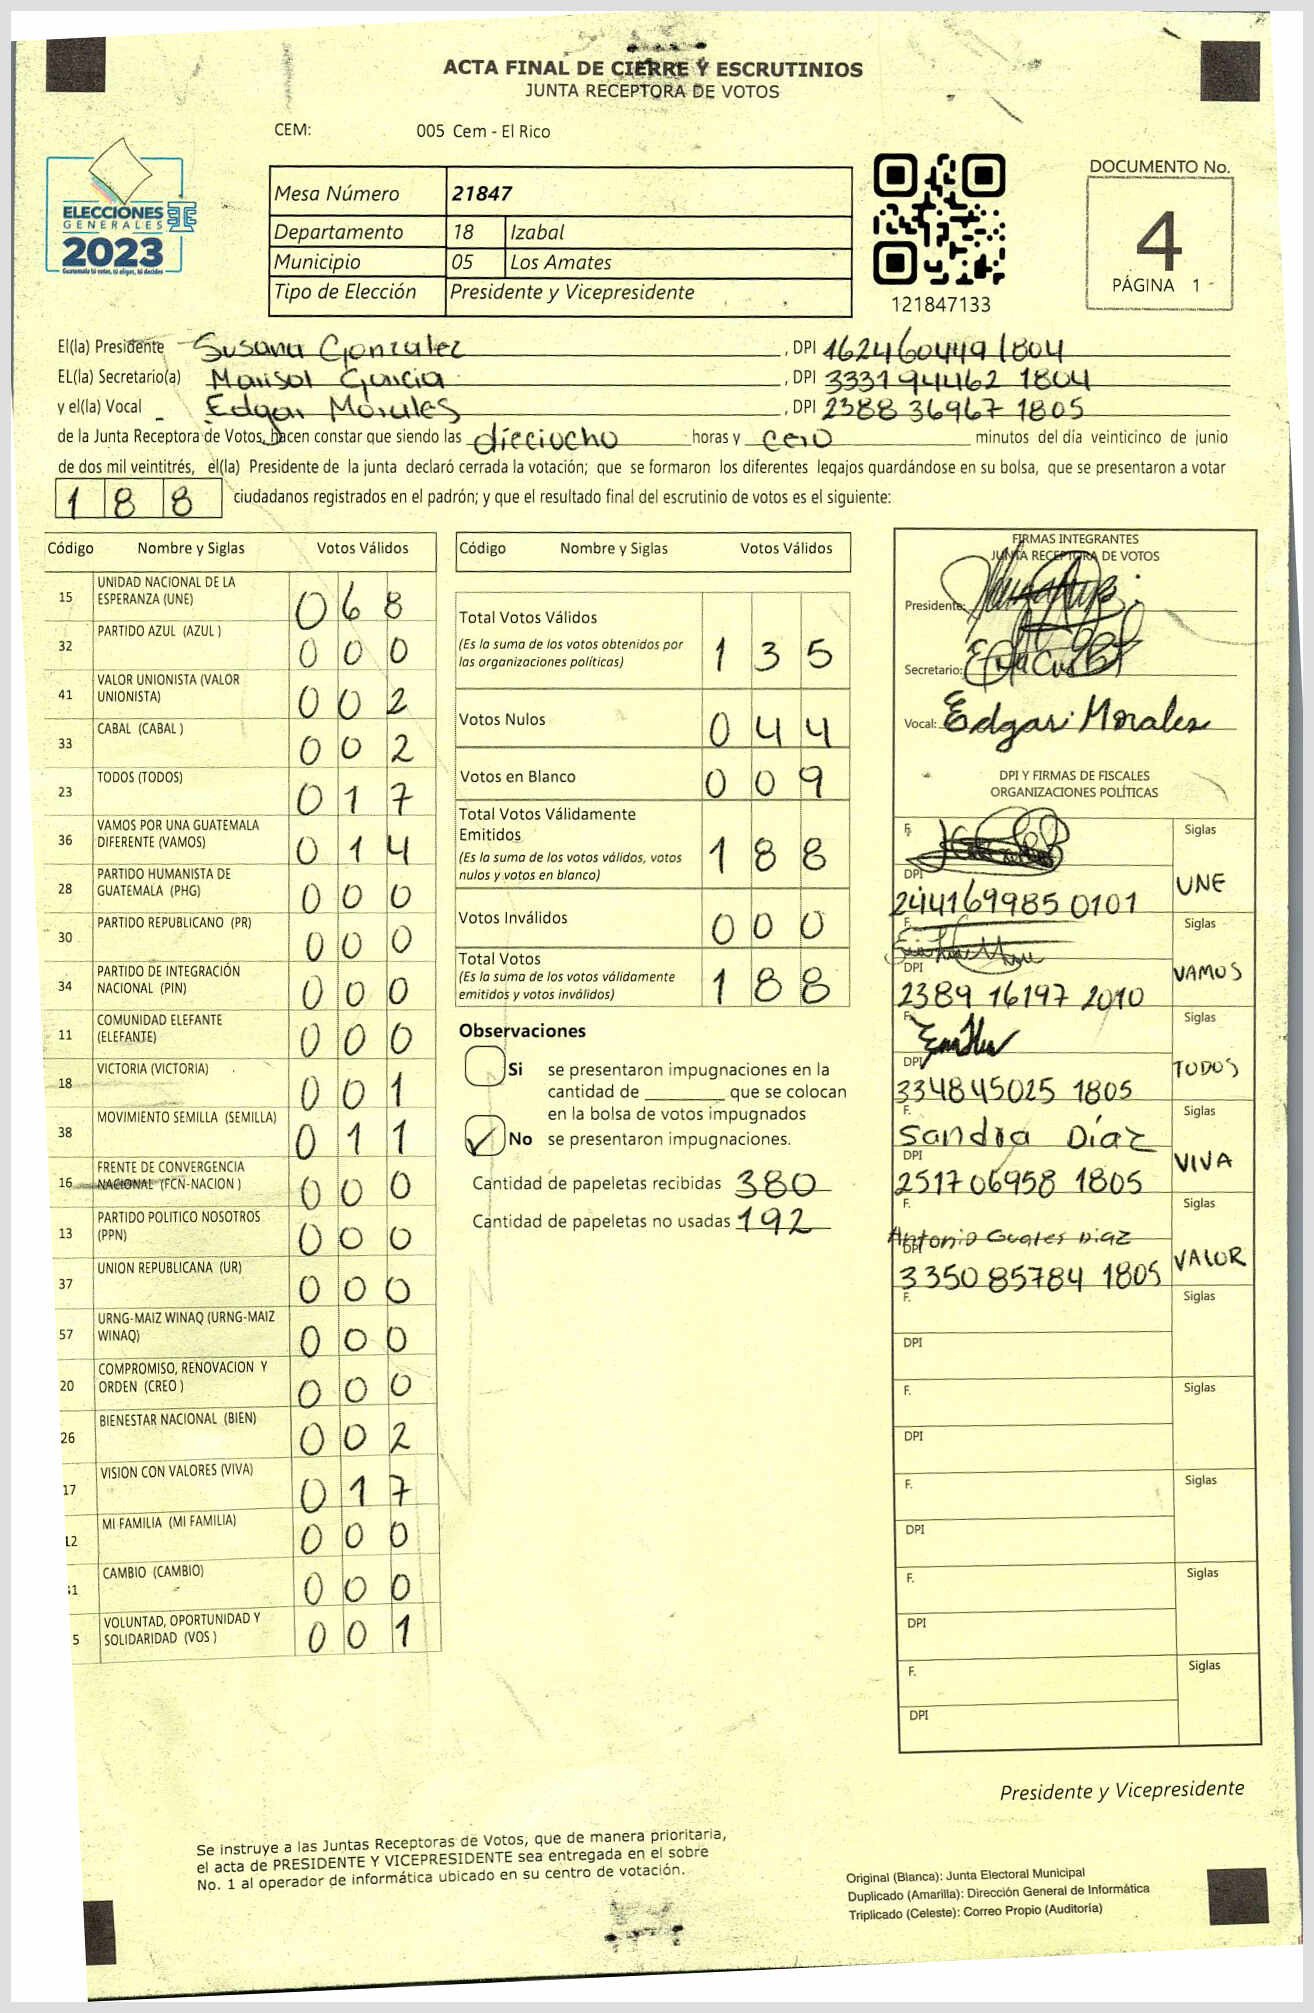 ACTA FINAL DE CIERRE Y ESCRUTINIOS
JUNTA RECEPTORA DE VOTOS
CEM: 005 Cem - El Rico
ELECCIONES
GENERALES
2023
Guatemala tú votas, tú eliges, tú decides
Mesa Número 21847
Departamento 18 Izabal
Municipio 05 Los Amates
Tipo de Elección Presidente y Vicepresidente
121847133
DOCUMENTO No.
4
PÁGINA 1
El(la) Presidente Susana Gonzalez , DPI 162460449 1804
EL(la) Secretario(a) Marisol Garcia , DPI 333194462 1804
y el(la) Vocal Edgar Morales , DPI 2388 36967 1805
de la Junta Receptora de Votos, hacen constar que siendo las dieciocho horas y cero minutos del día veinticinco de junio
de dos mil veintitrés, el(la) Presidente de la junta declaró cerrada la votación; que se formaron los diferentes legajos guardándose en su bolsa, que se presentaron a votar
188 ciudadanos registrados en el padrón; y que el resultado final del escrutinio de votos es el siguiente:
Código Nombre y Siglas Votos Válidos
15 UNIDAD NACIONAL DE LA ESPERANZA (UNE) 068
32 PARTIDO AZUL (AZUL ) 000
41 VALOR UNIONISTA (VALOR UNIONISTA) 002
33 CABAL (CABAL ) 002
23 TODOS (TODOS) 017
36 VAMOS POR UNA GUATEMALA DIFERENTE (VAMOS) 014
28 PARTIDO HUMANISTA DE GUATEMALA (PHG) 000
30 PARTIDO REPUBLICANO (PR) 000
34 PARTIDO DE INTEGRACIÓN NACIONAL (PIN) 000
11 COMUNIDAD ELEFANTE (ELEFANTE) 000
18 VICTORIA (VICTORIA) 001
38 MOVIMIENTO SEMILLA (SEMILLA) 011
16 FRENTE DE CONVERGENCIA NACIONAL (FCN-NACION ) 000
13 PARTIDO POLITICO NOSOTROS (PPN) 000
37 UNION REPUBLICANA (UR) 000
57 URNG-MAIZ WINAQ (URNG-MAIZ WINAQ) 000
20 COMPROMISO, RENOVACION Y ORDEN (CREO ) 000
26 BIENESTAR NACIONAL (BIEN) 002
17 VISION CON VALORES (VIVA) 017
12 MI FAMILIA (MI FAMILIA) 000
1 CAMBIO (CAMBIO) 000
5 VOLUNTAD, OPORTUNIDAD Y SOLIDARIDAD (VOS ) 001
Código Nombre y Siglas Votos Válidos
Total Votos Válidos 135
(Es la suma de los votos obtenidos por
las organizaciones políticas)
Votos Nulos 044
Votos en Blanco 009
Total Votos Válidamente
Emitidos 188
(Es la suma de los votos válidos, votos
nulos y votos en blanco)
Votos Inválidos 000
Total Votos 188
(Es la suma de los votos válidamente
emitidos y votos inválidos)
Observaciones
Si se presentaron impugnaciones en la
cantidad de ________ que se colocan
en la bolsa de votos impugnados
No se presentaron impugnaciones.
Cantidad de papeletas recibidas 380
Cantidad de papeletas no usadas 192
FIRMAS INTEGRANTES
JUNTA RECEPTORA DE VOTOS
Presidente:
Secretario:
Vocal: Edgar Morales
DPI Y FIRMAS DE FISCALES
ORGANIZACIONES POLÍTICAS
F. Siglas
DPI UNE
244169985 0101
F. Siglas
DPI VAMOS
2389 16197 2010
F. Siglas
DPI TODOS
334845025 1805
F. Siglas
Sandra Díaz
DPI VIVA
251706958 1805
F. Siglas
Antonio Diaz
DPI VALOR
3350 85784 1805
F. Siglas
DPI
F. Siglas
DPI
F. Siglas
DPI
F. Siglas
DPI
F. Siglas
DPI
Presidente y Vicepresidente
Se instruye a las Juntas Receptoras de Votos, que de manera prioritaria,
el acta de PRESIDENTE Y VICEPRESIDENTE sea entregada en el sobre
No. 1 al operador de informática ubicado en su centro de votación.
Original (Blanca): Junta Electoral Municipal
Duplicado (Amarilla): Dirección General de Informática
Triplicado (Celeste): Correo Propio (Auditoría)